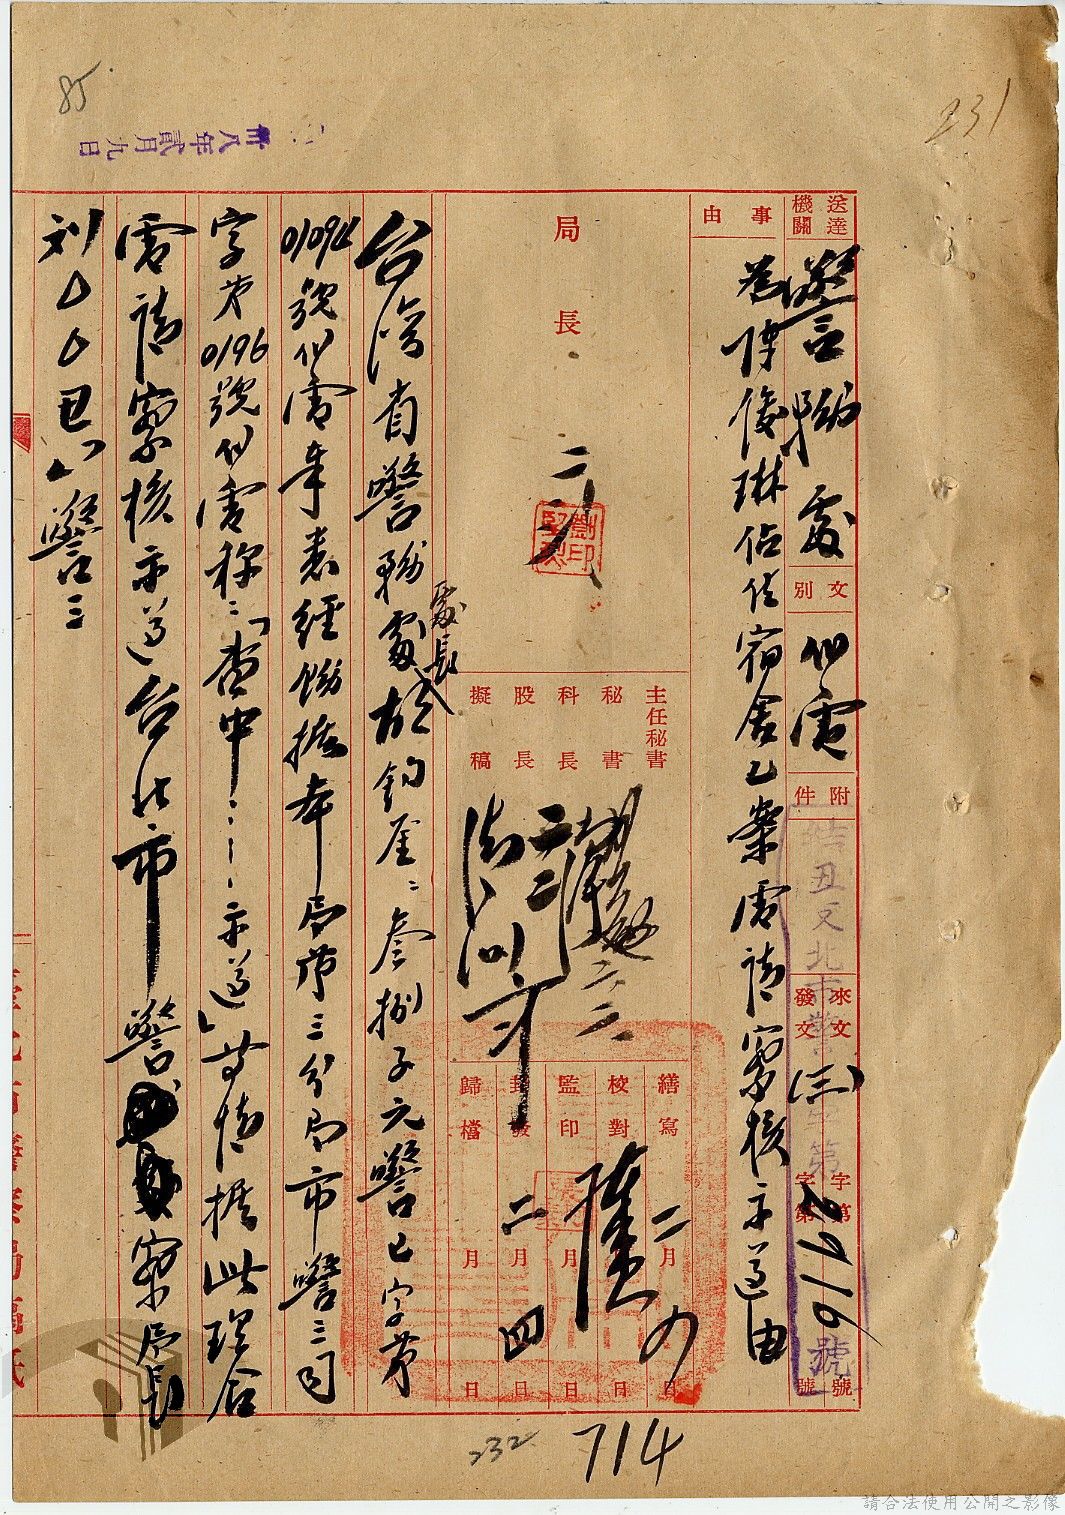 85
231
卅八年貳月九日
送達機關
警務處
文別
代電
附件
來文 字第 號
發文 字第 號
(三) 號
事由
為陳俊琳佔住宿舍乙案電請察核示遵由
局長
主任秘書
秘書
科長
股長
擬稿
繕寫 二月 日
校對 月 日
監印 月 日
封發 二月四日
歸檔 月 日
台灣省警務處處長
叁捌子元警己字第
01094號代電奉悉經飭據本局第三分局市警三司
字第0196號代電稱：「查中……示遵」等情據此理合
電請察核示遵台北市警察局長
刘△△丑 警三
232
714
請合法使用公開之影像